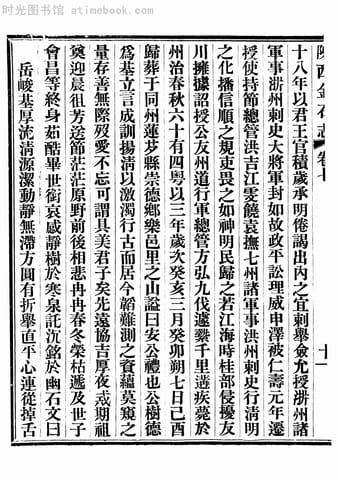 时光图书馆 - atimebook.com
陝西金石志 卷七 十一
十八年以君王官積歲承明倦謁出內之宜刺舉僉允授浙州諸
軍事浙州刺史大將軍封如故政平訟理威申澤被仁壽元年遷
授使持節總管洪吉江雯饒袁撫七州諸軍事洪州刺史行清明
之化播信順之規吏畏之如神明民歸之若江海時桂部侵擾友
川擁據詔授公友州道行軍總管方弘九伐遽纂千里遘疾薨於
州治春秋六十有四粤以三年歲次癸亥三月癸卯朔七日己酉
歸葬于同州蓮芍縣崇德鄉樂邑里之山謚曰安公禮也公樹德
爲基立言成訓揚清以激濁行古而居今韜難測之資蘊莫窺之
量存善無際歿愛不忘可謂具美君子矣先遠協吉厚夜戒期祖
奠迎晨徂芳送節茫茫原野前後相悲冉冉春冬榮枯遞及世子
會昌等終身茹酷畢世銜哀感靜樹於寒泉託沉銘於幽石文曰
岳峻基厚流清源潔動靜無滯方圓有折舉直平心連從掉舌